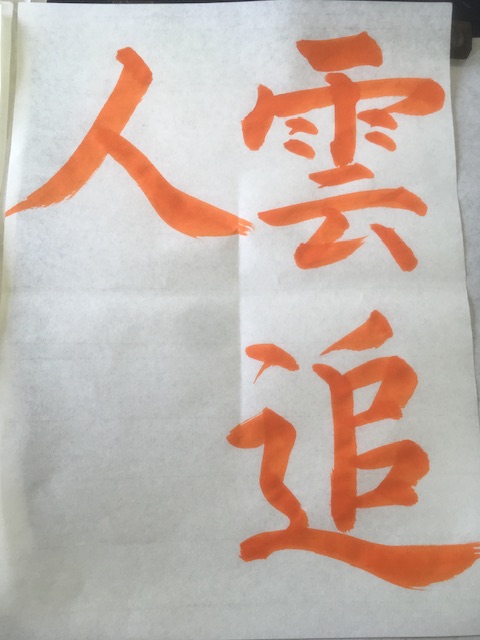 雲追
人